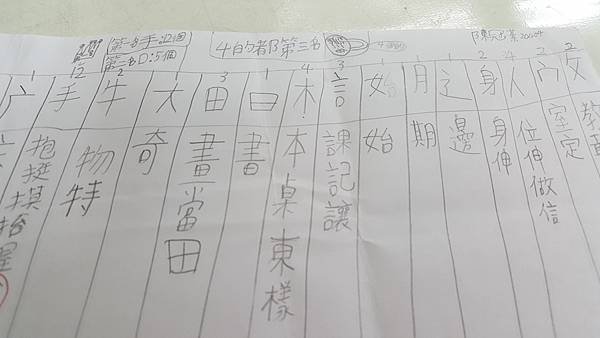 第一名手:12個
第二名口:5個
4的都第三名
2 攵 教
2 宀 室定
4 人 位伸做信
2 身 身伸
1 辶 邊
1 月 期
1 始 始
3 言 課記讓
4 木 本桌東樣
1 曰 書
3 田 畫當田
1 大 奇
2 牛 物特
12 手 抱挺摸抬握
广